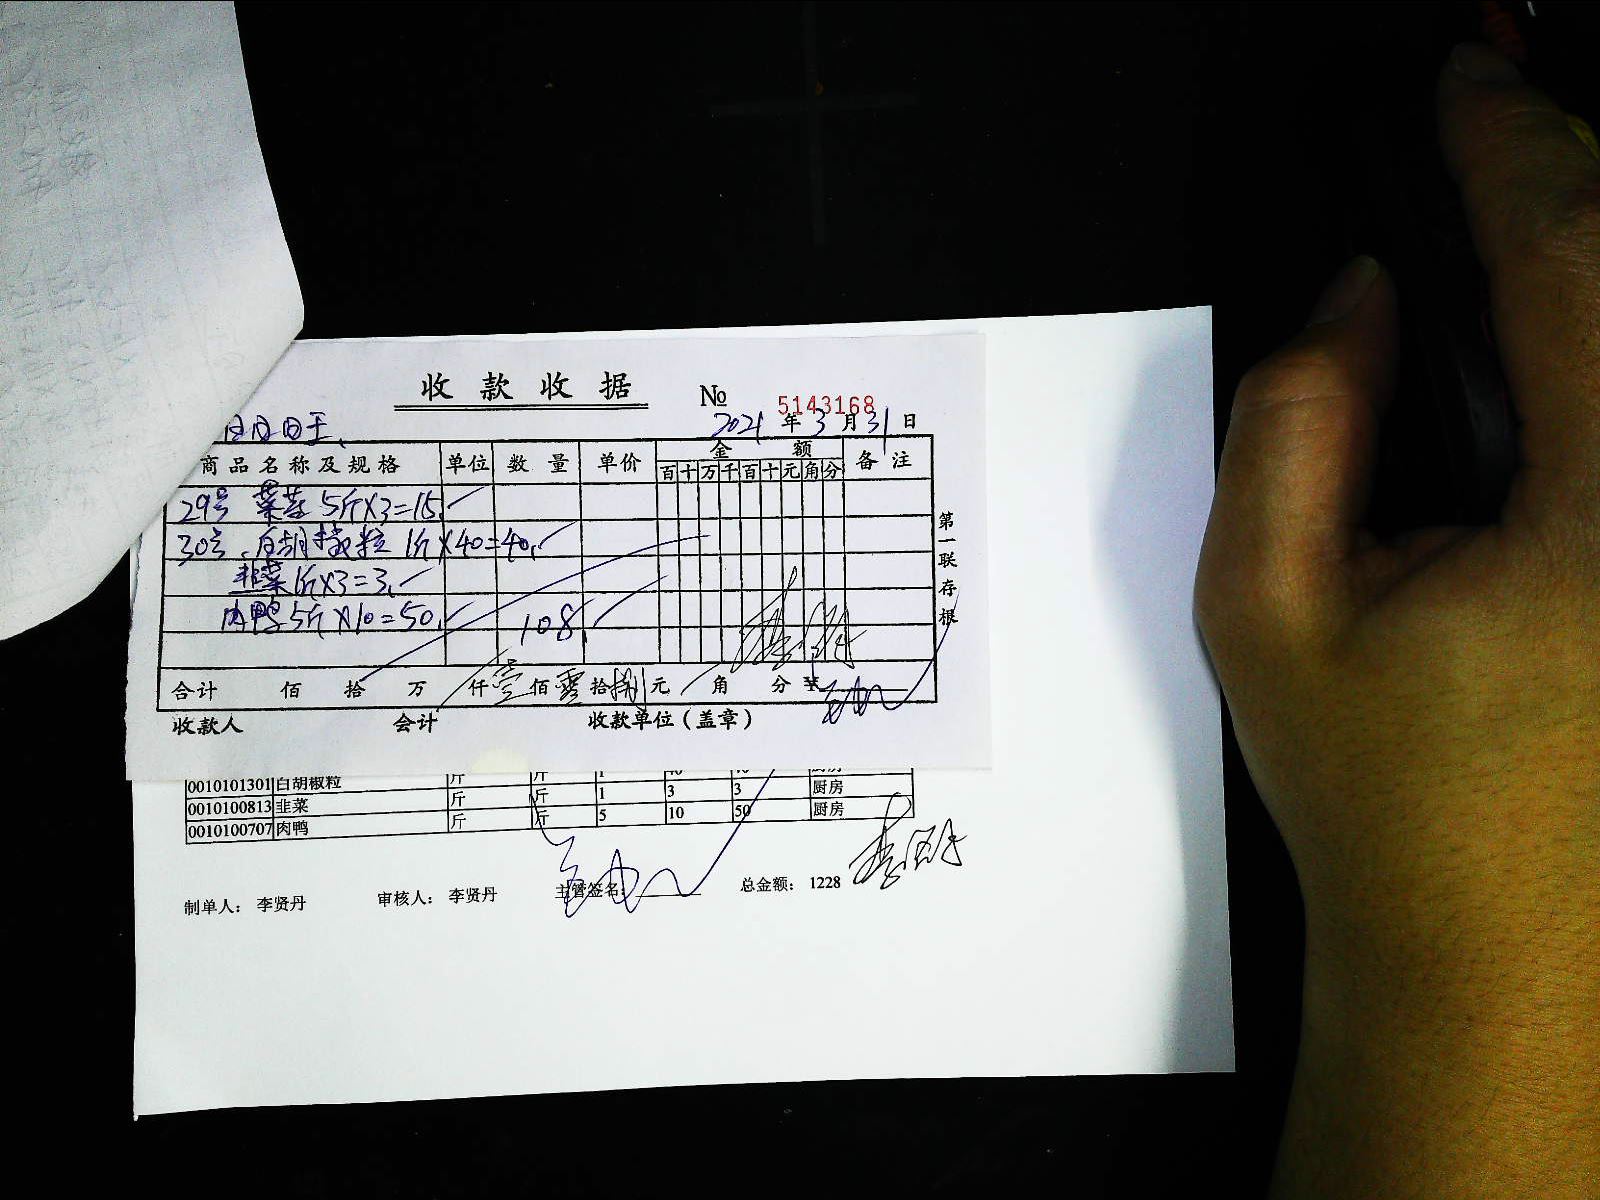 收款收据 № 5143168
2021年3月31日
商品名称及规格 单位 数量 单价 金额 备注
百十万千百十元角分
29号 菜苔 5斤×3=15
30号 白胡椒粒 1斤×40=40
韭菜 1斤×3=3
肉鸭 5斤×10=50
108
第一联存根
合计 佰 拾 万 仟壹佰零拾捌元 角 分
收款人 会计 收款单位(盖章)
0010101301 白胡椒粒 斤 斤 1 40
0010100813 韭菜 斤 斤 1 3 3 厨房
0010100707 肉鸭 斤 斤 5 10 50 厨房
制单人: 李贤丹 审核人: 李贤丹 主管签名: 总金额: 1228